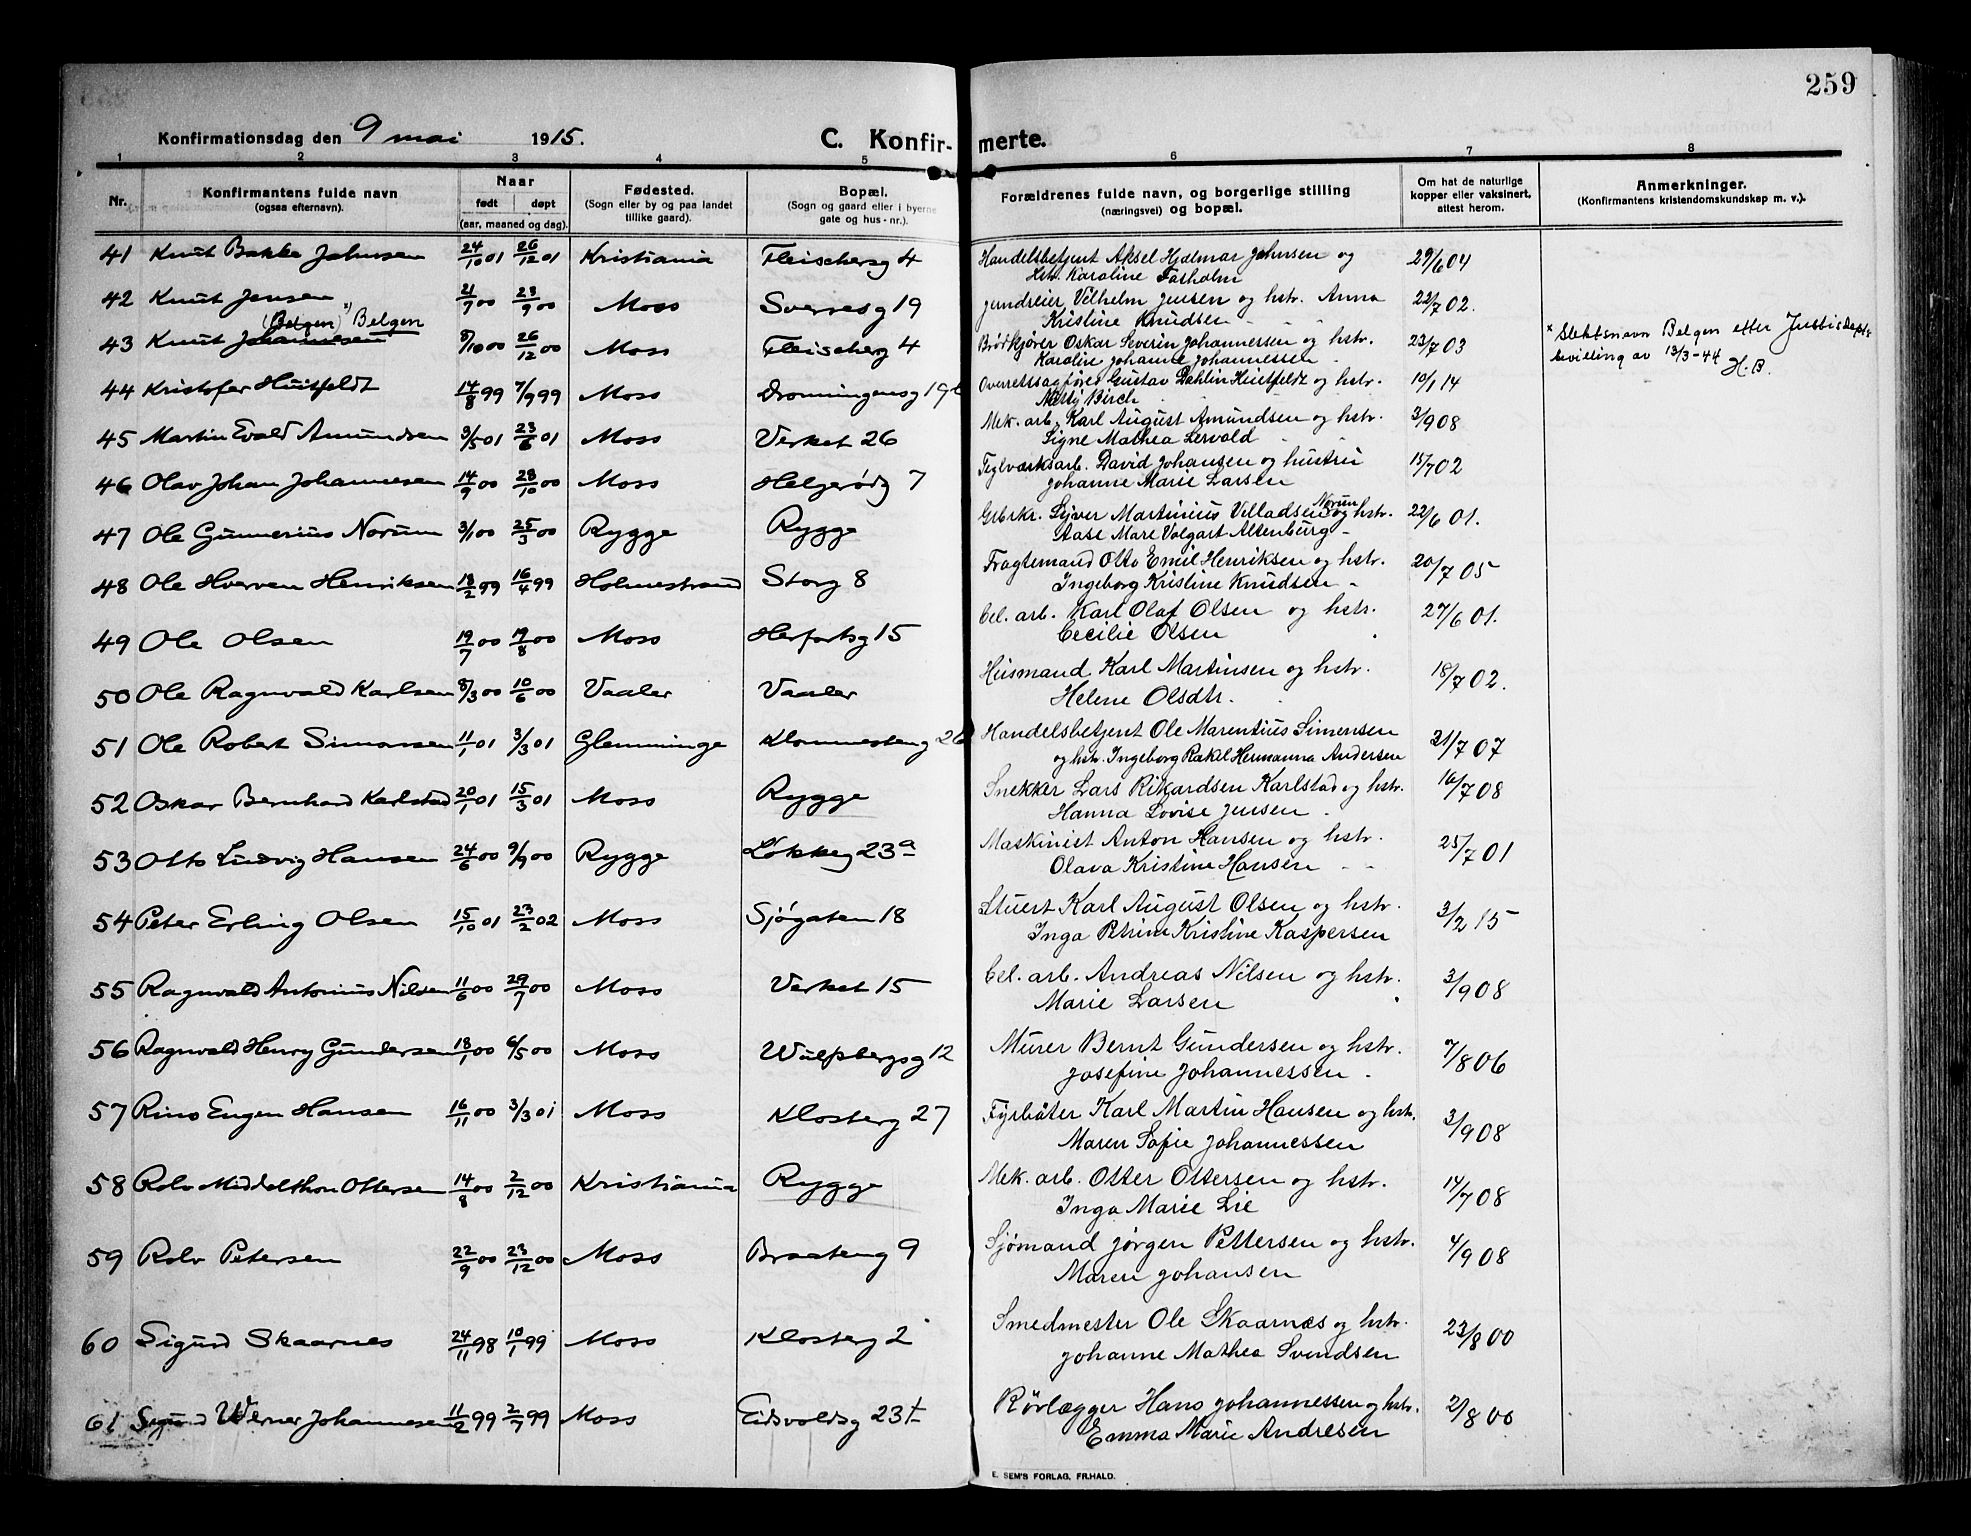 259
Konfirmationsdag den 9 mai 1915. C. Konfirmerte.
1 2 3 4 5 6 7 8
Nr. Konfirmantens fulde navn (ogsaa efternavn). Naar født døpt (aar, maaned og dag). Fødested. (Sogn eller by og paa landet tillike gaard). Bopæl. (Sogn og gaard eller i byerne gate og hus-nr.). Forældrenes fulde navn, og borgerlige stilling (næringsvei) og bopæl. Om hat de naturlige kopper eller vaksinert, attest herom. Anmerkninger. (Konfirmantens kristendomskundskap m. v.).
41 Knut Bakke Johnsen 24/10 01 26/12 01 Kristiania Fleischersg 4 Handelsbetjent Aksel Hjelmar Johnsen og 29/6 04
hstr. Karoline Fosholm
42 Knut Jensen 21/7 00 23/9 00 Moss Sverresg 19 Jundreier Vilhelm Jensen og hstr. Anna 22/7 02.
Kristine Knudsen
(Belgen) x) Belgen
43 Knut Johannesen 8/10 00 26/12 00 Moss Fleischerg 4 Brödkjører Oskar Severin Johannessen og hstr. 23/7 03 x Slektsnavn Belgen etter Justisdepts
Karoline Johanne Johannessen bevilling av 13/3-44
H.B.
44 Kristofer Huitfeldt 14/8 99 7/9 99 Moss Dronningensg 19b Overretssagfører Gustav Dahlin Huitfeldt og hstr. 10/1 14
Birch
45 Martin Evald Amundsen 3/5 01 23/6 01 Moss Verket 26 Mek. arb. Karl August Amundsen og hstr. 3/9 08
Signe Mathea Lervold
46 Olav Johan Johannesen 14/9 00 28/10 00 Moss Helgerödg 7 Teglværksarb. David Johansen og hustru 15/7 02
Johanne Marie Larsen
47 Ole Gunnerius Norum 3/1 00 25/3 00 Rygge Rygge Grbrkr. Syver Martinius Villadsen Norum og hstr. 22/6 01.
Aase Mare Volgart Altenburg
48 Ole Hverven Henriksen 18/2 99 16/4 99 Holmestrand Storg 8 Fragtemand Otto Emil Henriksen og hstr. 20/7 05
Ingeborg Kristine Knudsen
49 Ole Olsen 19/7 00 19/8 00 Moss Herfortsg 15 Cel. arb. Karl Olaf Olsen og hstr. 27/6 01.
Cecilie Olsen
50 Ole Ragnvald Karlsen 8/3 00 10/6 00 Vaaler Vaaler Husmand Karl Martinsen og hstr. 18/7 02.
Helene Olsdtr.
51 Ole Robert Simonsen 11/1 01 3/3 01 Glemminge 26 Handelsbetjent Ole Marentius Simensen 31/7 07
og hstr. Ingeborg Rakel Hermanna Andersen
52 Oskar Bernhard Karlstad 20/1 01 15/3 01 Moss Rygge Snekker Lars Rikardsen Karlstad og hstr. 16/7 08
Hanna Lovise Jensen
53 Otto Ludvig Hansen 24/6 00 9/9 00 Rygge Løkkeg 23a Maskinist Anton Hansen og hstr. 25/7 01
Olava Kristine Hansen
54 Peter Erling Olsen 15/10 01 23/2 02 Moss Sjøgaten 18 Stuert Karl August Olsen og hstr. 3/2 15
Inga Petrine Kristine Kaspersen
55 Ragnvald Antonius Nilsen 11/6 00 29/7 00 Moss Verket 15 Cel. arb. Andreas Nilsen og hstr. 3/9 08
Marie Larsen
56 Ragnvald Henry Gundersen 18/1 00 6/5 00 Moss Wulfsbergsg 12 Murer Bernt Gundersen og hstr. 7/8 06
Josefine Johannessen
57 Rino Eugen Hansen 16/11 00 3/3 01 Moss Klosterg 27 Fyrbøter Karl Martin Hansen og hstr. 3/9 08
Maren Sofie Johannessen
58 Rolv Middelthon Ottersen 14/8 00 2/12 00 Kristiania Rygge Mek. arb. Otter Ottersen og hstr. 14/7 08
Inga Marie Lie
59 Rolv Petersen 22/9 00 23/12 00 Moss Braateng 9 Sjømand Jørgen Pettersen og hstr. 4/9 08
Maren Johansen
60 Sigurd Skaarnes 24/11 98 10/1 99 Moss Klosterg 2 Smedmester Ole Skaarnes og hstr. 23/8 00
Johanne Mathea Svendsen
61 Sigurd Werner Johannesen 11/2 99 2/7 99 Moss Eidsvoldsg 23 Rörlægger Hans Johannessen og hstr. 2/8 00
Emma Marie Andresen
E. SEM'S FORLAG, FR.HALD.